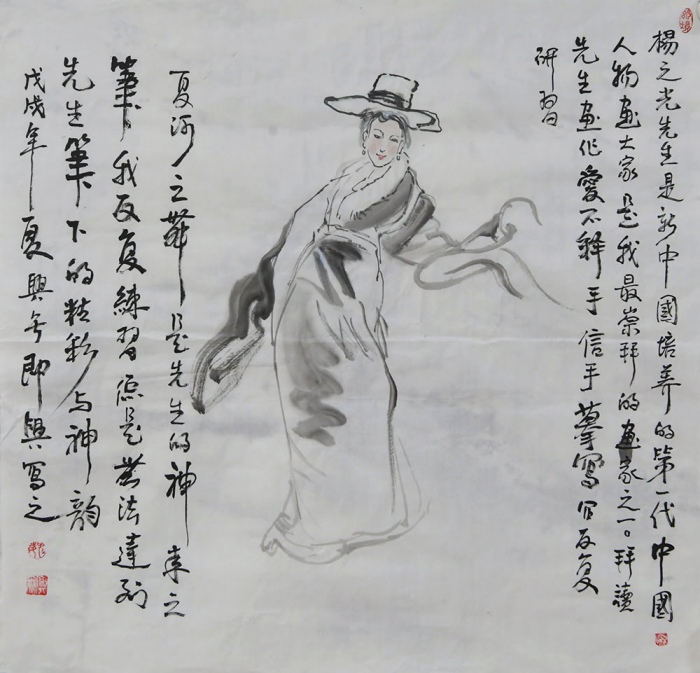 楊之光先生是新中國培养的第一代中國
人物画大家是我最崇拜的画家之一。拜讀
先生画作愛不釋手信手摹寫反复
研習
夏河之舞是先生的神來之
筆我反复練習总是無法達到
先生筆下的精彩与神韻
戊戌年夏興年即興写之